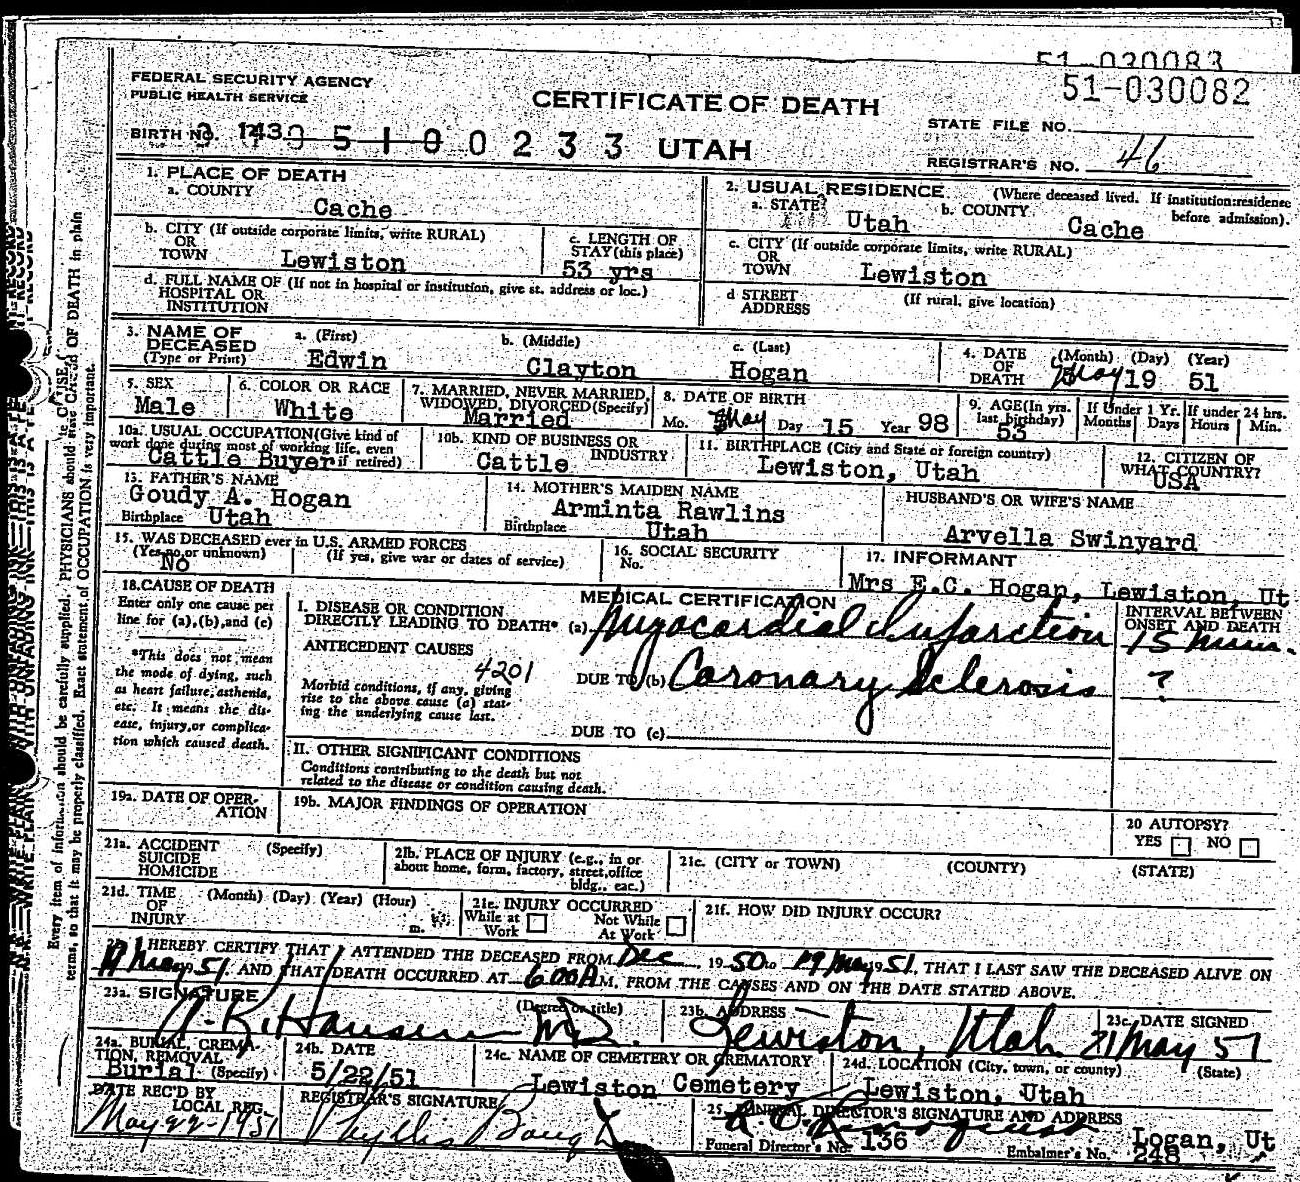 51-030083
51-030082
FEDERAL SECURITY AGENCY
PUBLIC HEALTH SERVICE
CERTIFICATE OF DEATH
STATE FILE NO.
BIRTH NO. 143 510 0233 UTAH
REGISTRAR'S NO. 46
1. PLACE OF DEATH
a. COUNTY
Cache
2. USUAL RESIDENCE (Where deceased lived. If institution:residence before admission).
a. STATE Utah b. COUNTY Cache
b. CITY (If outside corporate limits, write RURAL)
OR
TOWN Lewiston
c. LENGTH OF
STAY (this place)
53 yrs
c. CITY (If outside corporate limits, write RURAL)
OR
TOWN Lewiston
d. FULL NAME OF (If not in hospital or institution, give st. address or loc.)
HOSPITAL OR
INSTITUTION
d STREET (If rural, give location)
ADDRESS
3. NAME OF
DECEASED
(Type or Print)
a. (First) Edwin
b. (Middle) Clayton
c. (Last) Hogan
4. DATE
OF
DEATH
(Month) (Day) (Year)
May 19 51
5. SEX
Male
6. COLOR OR RACE
White
7. MARRIED, NEVER MARRIED,
WIDOWED, DIVORCED (Specify)
Married
8. DATE OF BIRTH
Mo. May Day 15 Year 98
9. AGE (In yrs.
last birthday)
53
If Under 1 Yr.
Months Days
If under 24 hrs.
Hours Min.
10a. USUAL OCCUPATION (Give kind of
work done during most of working life, even
if retired)
Cattle Buyer
10b. KIND OF BUSINESS OR
INDUSTRY
Cattle
11. BIRTHPLACE (City and State or foreign country)
Lewiston, Utah
12. CITIZEN OF
WHAT COUNTRY?
USA
13. FATHER'S NAME
Goudy A. Hogan
Birthplace Utah
14. MOTHER'S MAIDEN NAME
Arminta Rawlins
Birthplace Utah
HUSBAND'S OR WIFE'S NAME
Arvella Swinyard
15. WAS DECEASED ever in U.S. ARMED FORCES
(Yes, no or unknown) (If yes, give war or dates of service)
No
16. SOCIAL SECURITY
No.
17. INFORMANT
Mrs E.C. Hogan, Lewiston, Ut
18. CAUSE OF DEATH
Enter only one cause per
line for (a), (b), and (c)
*This does not mean
the mode of dying, such
as heart failure, asthenia,
etc. It means the dis-
ease, injury, or complica-
tion which caused death.
MEDICAL CERTIFICATION
I. DISEASE OR CONDITION
DIRECTLY LEADING TO DEATH* (a) Myocardial Infarction
INTERVAL BETWEEN
ONSET AND DEATH
15
ANTECEDENT CAUSES
4201
Morbid conditions, if any, giving
rise to the above cause (a) stat-
ing the underlying cause last.
DUE TO (b) Coronary Sclerosis ?
DUE TO (c)
II. OTHER SIGNIFICANT CONDITIONS
Conditions contributing to the death but not
related to the disease or condition causing death.
19a. DATE OF OPER-
ATION
19b. MAJOR FINDINGS OF OPERATION
20 AUTOPSY?
YES NO
21a. ACCIDENT (Specify)
SUICIDE
HOMICIDE
21b. PLACE OF INJURY (e.g., in or
about home, form, factory, street, office
bldg., eac.)
21c. (CITY or TOWN) (COUNTY) (STATE)
21d. TIME (Month) (Day) (Year) (Hour)
OF
INJURY m.
21e. INJURY OCCURRED
While at Work Not While At Work
21f. HOW DID INJURY OCCUR?
I HEREBY CERTIFY THAT I ATTENDED THE DECEASED FROM Dec 1950 to 19 May 1951, THAT I LAST SAW THE DECEASED ALIVE ON
19 May 1951, AND THAT DEATH OCCURRED AT 6:00 A M, FROM THE CAUSES AND ON THE DATE STATED ABOVE.
23a. SIGNATURE (Degree or title)
M.D.
23b. ADDRESS
Lewiston, Utah
23c. DATE SIGNED
21 May 51
24a. BURIAL, CREMA-
TION, REMOVAL
Burial (Specify)
24b. DATE
5/22/51
24c. NAME OF CEMETERY OR CREMATORY
Lewiston Cemetery
24d. LOCATION (City, town, or county) (State)
Lewiston, Utah
DATE REC'D BY
LOCAL REG.
May 22-1951
REGISTRAR'S SIGNATURE
Phyllis
25. FUNERAL DIRECTOR'S SIGNATURE AND ADDRESS
Logan, Ut
Funeral Director's No. 136
Embalmer's No. 248
Every item of information should be carefully supplied. PHYSICIANS should state CAUSE OF DEATH in plain
terms, so that it may be properly classified. Exact statement of OCCUPATION is very important.